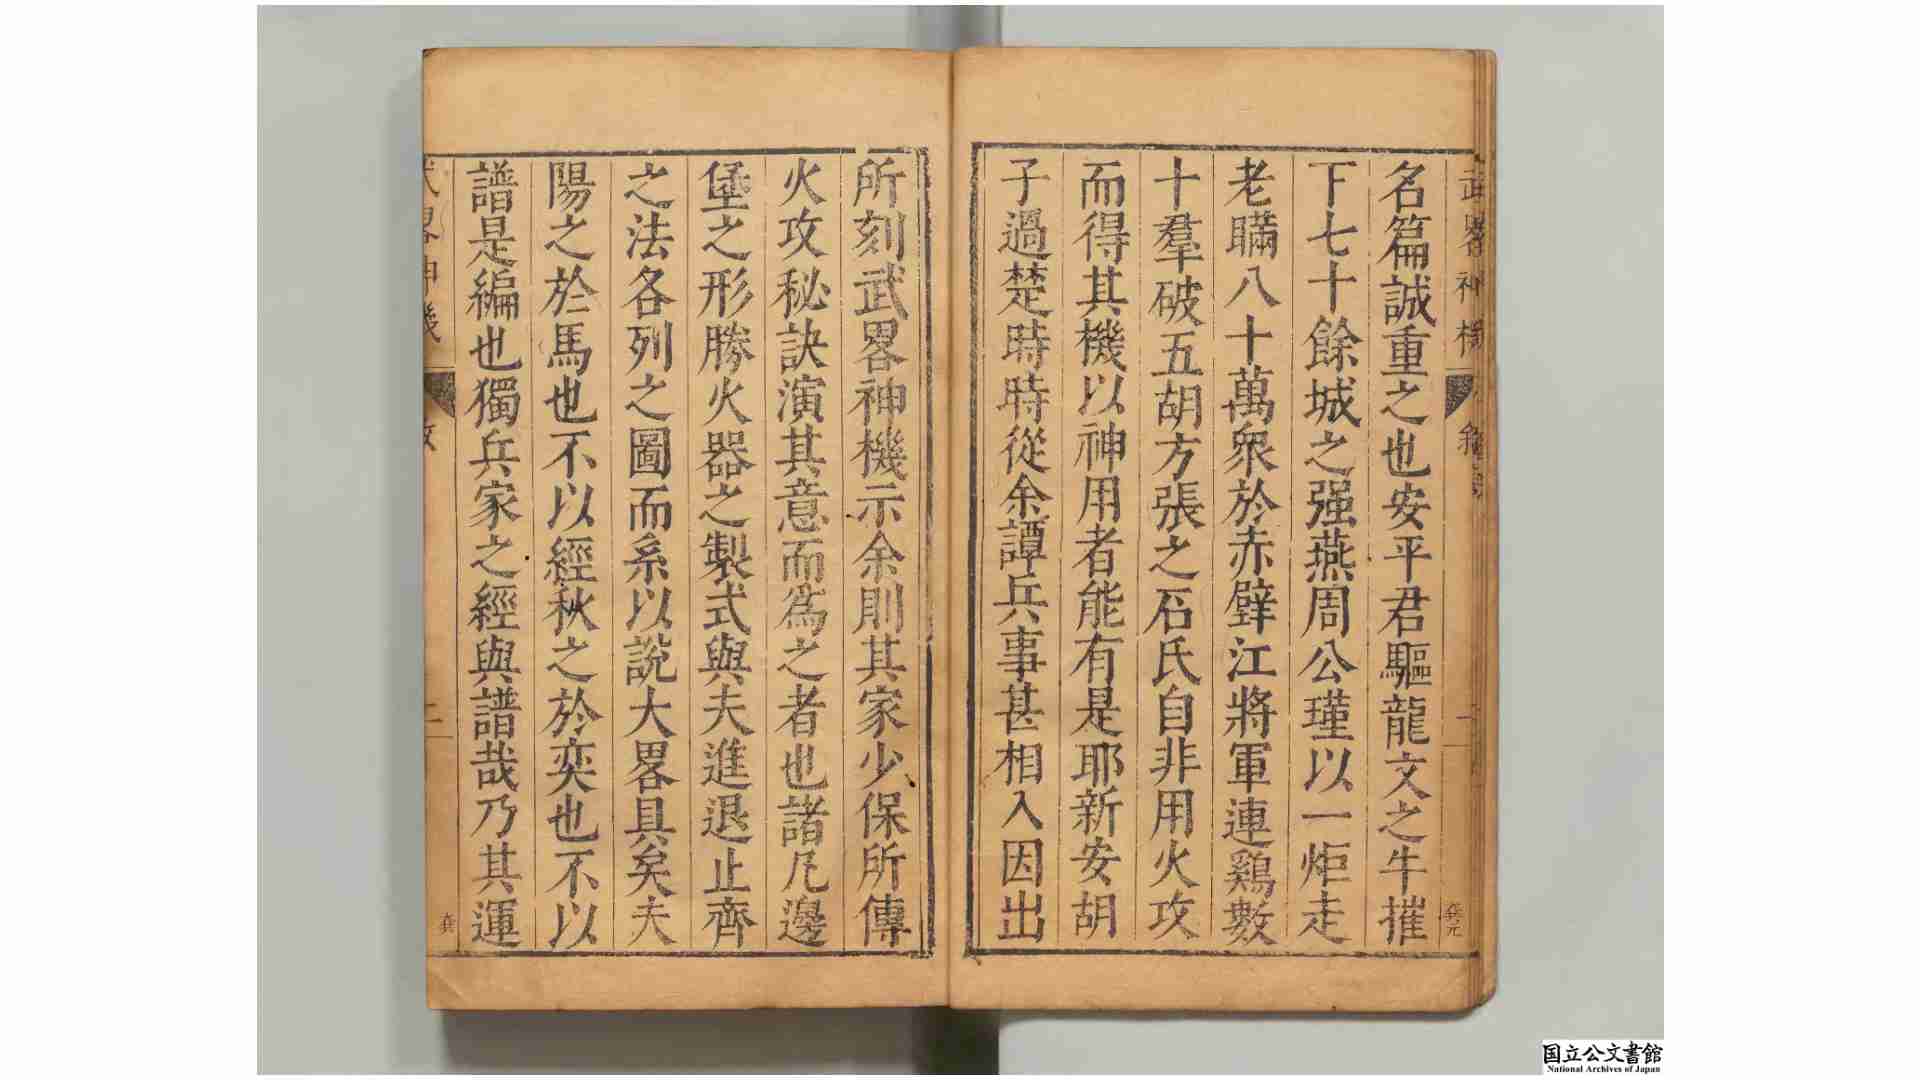 武畧神機
叙
一
名篇誠重之也安平君驅龍文之牛摧
下七十餘城之强燕周公瑾以一炬走
老瞞八十萬衆於赤壁江將軍連鷄數
十羣破五胡方張之石氏自非用火攻
而得其機以神用者能有是耶新安胡
子過楚時時從余譚兵事甚相入因出
所刻武畧神機示余則其家少保所傳
火攻秘訣演其意而爲之者也諸凡邊
堡之形勝火器之製式與夫進退止齊
之法各列之圖而系以説大畧具矣夫
陽之於馬也不以經秋之於奕也不以
譜是編也獨兵家之經與譜哉乃其運
武畧神機
二
国立公文書館
National Archives of Japan